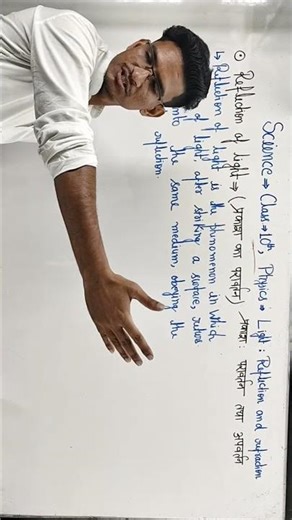 Science → Class → 10th, Physics → Light : Reflection and refraction
⊙ Reflection of light → (प्रकाश का परावर्तन) प्रकाश : परावर्तन तथा अपवर्तन
↳ Reflection of light is the phenomenon in which
of light, after striking a surface, return
into the same medium, obeying the
reflection.